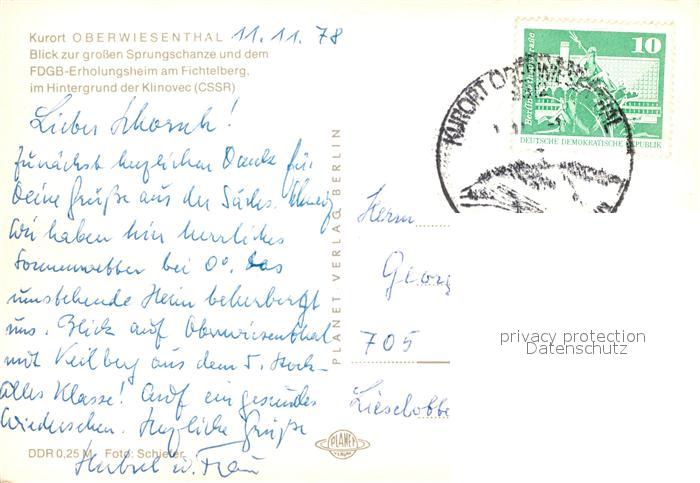 Kurort OBERWIESENTHAL 11.11.78
Blick zur großen Sprungschanze und dem
FDGB-Erholungsheim am Fichtelberg,
im Hintergrund der Klinovec (CSSR)
Lieber Schorsch!
zunächst herzlichen Dank für
Deine Grüße aus der Sächs.
Wir haben hier herrliches
Sonnenwetter bei 0°. Das
umstehende Heim beherbergt
uns. Blick auf Oberwiesenthal
mit Keilberg aus dem 5. Stock-
alles Klasse! Auf ein gesundes
Wiedersehen. Herzliche Grüße
u. Frau
DDR 0,25 M Foto: Schieler
PLANET VERLAG BERLIN
PLANET
VERLAG
10
Berlin
DEUTSCHE DEMOKRATISCHE REPUBLIK
KURORT OBERWIESENTHAL
Herrn
Georg
705
privacy protection
Datenschutz